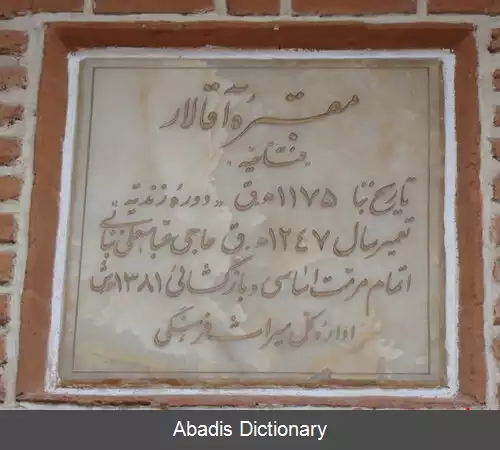 مقبرهٔ آقالار
فتاحیه
تاریخ بنا ۱۱۷۵ ه‍.ق " دورهٔ زندیه
تعمیر سال ۱۲۴۷ ه‍.ق حاجی عباسقلی بنائی
اتمام مرمت اساسی و بازگشائی ۱۳۸۱ ش
اداره کل میراث فرهنگی
Abadis Dictionary